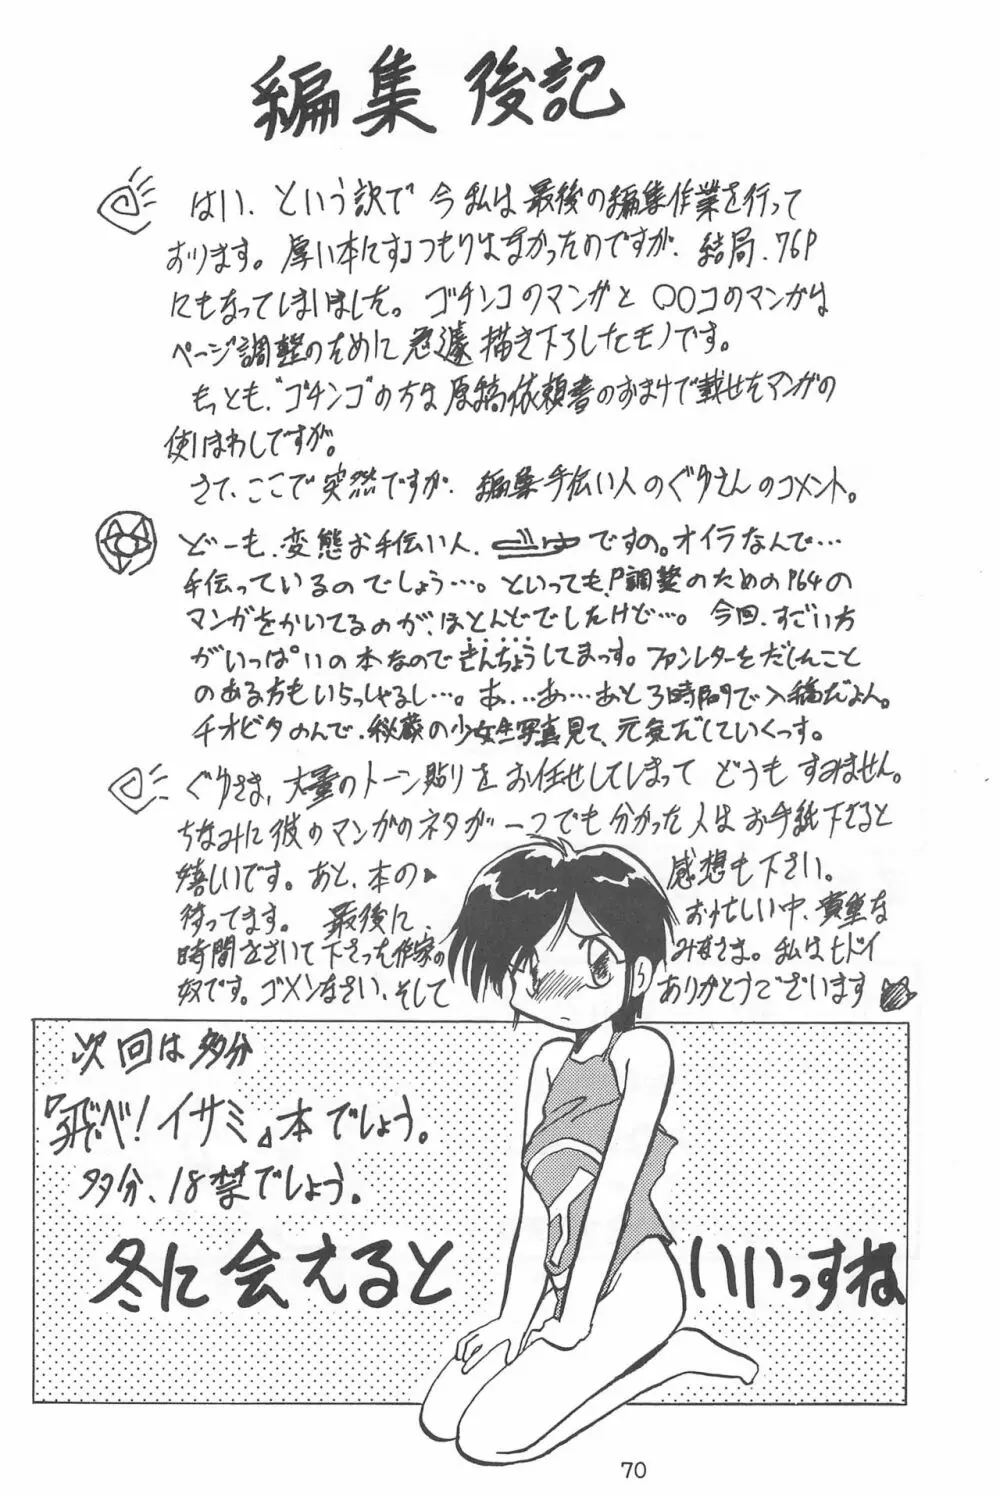 編集後記
はい、という訳で今私は最後の編集作業を行って
おります。厚い本にするつもりはなかったのですが、結局、76P
にもなってしまいました。ゴチンコのマンガと○○コのマンガは
ページ調整のために急遽描き下ろしたモノです。
もっとも、"ゴチンゴ"の方は原稿依頼書のおまけで載せたマンガの
使いまわしですが。
さて、ここで突然ですが、編集手伝い人のぐりさんのコメント。
どーも、変態お手伝い人、ですの。オイラなんで…
手伝っているのでしょう…。といっても、P調整のためのP64の
マンガをかいてるのが、ほとんどでしたけど…。今回、すごい方
がいっぱいの本なのできんちょうしてまっす。ファンレターをだしたこと
のある方もいらっしゃるし…。あ…あ…あと3時間で入稿だよん。
チオビタのんで、秘蔵の少女生写真見て、元気だしていくっす。
ぐりさま、大量のトーン貼りをお任せしてしまってどうもすみません。
ちなみに彼のマンガのネタが一つでも分かった人はお手紙下さると
嬉しいです。あと、本の感想も下さい。
待ってます。最後に、おいそがしい中、貴重な
時間をさいて下さった作家のみなさま。私はヒドイ
奴です。ゴメンなさい、そしてありがとうございます
次回は多分
『飛べ!イサミ』本でしょう。
多分、18禁でしょう。
冬に会えるといいっすね
70